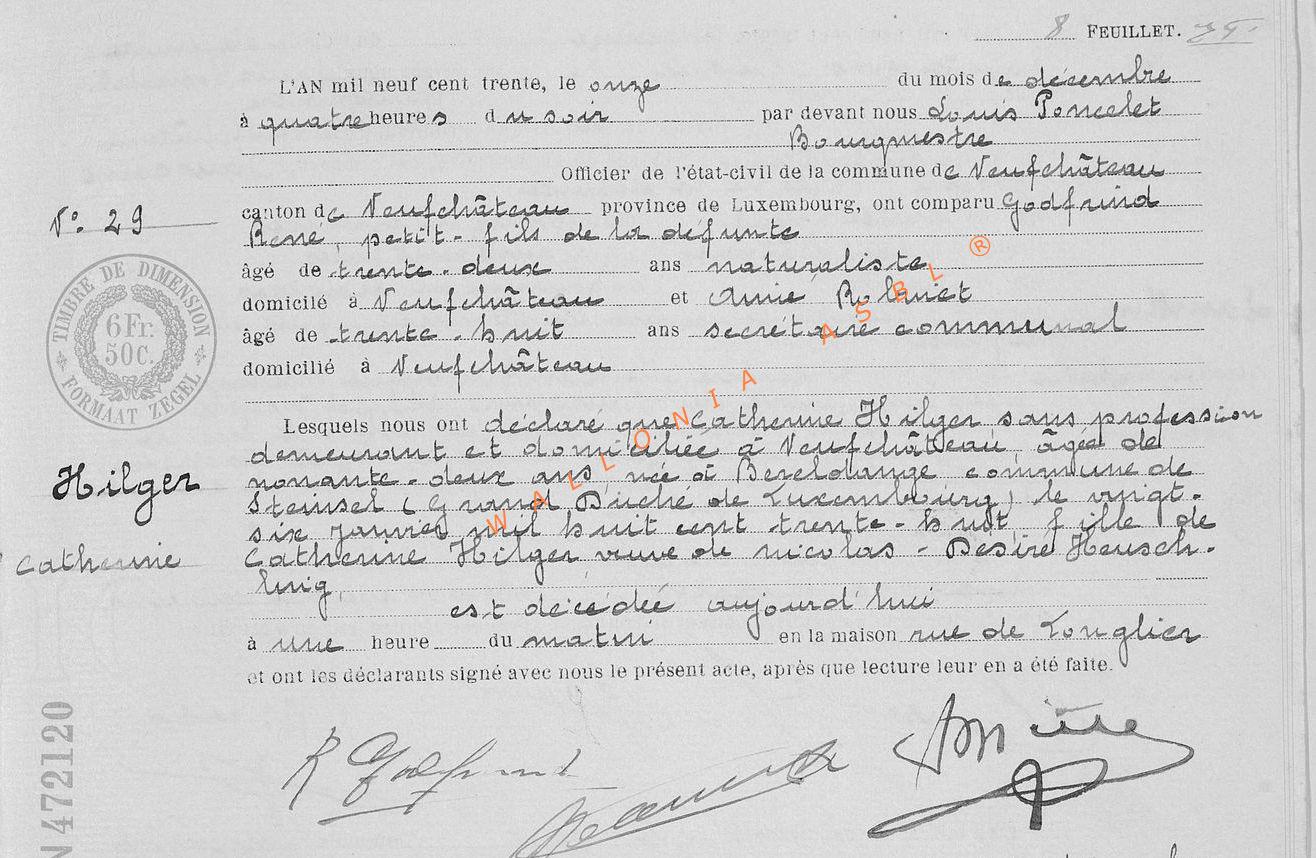 8 FEUILLET.
L'AN mil neuf cent trente, le onze du mois de décembre
à quatre heures du soir par devant nous Louis Poncelet
Bourgmestre
Officier de l'état-civil de la commune de Neufchâteau
canton de Neufchâteau province de Luxembourg, ont comparu Godfrind
René, petit-fils de la defunte
âgé de trente-deux ans naturaliste
domicilé à Neufchâteau et
âgé de trente-huit ans secrétaire communal
domicilié à Neufchâteau
Lesquels nous ont déclaré que Catherine Hilger sans profession
demeurant et domiciliée à Neufchâteau, âgée de
nonante-deux ans, née à Bereldange commune de
Steinsel (Grand Duché de Luxembourg) le vingt-
six janvier mil huit cent trente-huit, fille de
Catherine Hilger veuve de Nicolas-Désiré Heusch-
ling,
est décédée aujourd'hui
à une heure du matin en la maison rue de Longlier
et ont les déclarants signé avec nous le présent acte, après que lecture leur en a été faite.
N° 29
TIMBRE DE DIMENSION
6 Fr.
50 C.
FORMAAT ZEGEL
Hilger
Catherine
N 472120
R Godfrind
WALLONIA ASBL ®